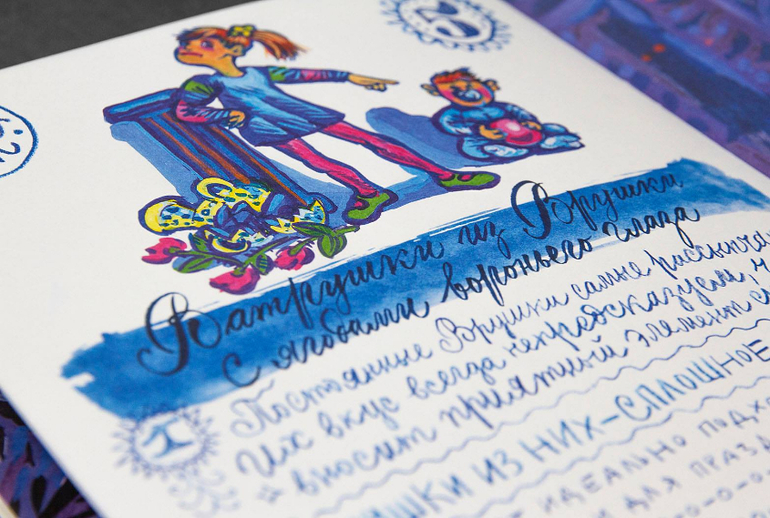 5
Ватрушки из Врушки
с ягодами вороньего глаза
Постоянные Врушки самые рассыпча
Их вкус всегда непредсказуем, ч
вносит приятный элемент с
1
ШКИ ИЗ НИХ-СПЛОШНОЕ
ИДЕАЛЬНО ПОДХО
И ДЛЯ ПРАЗД